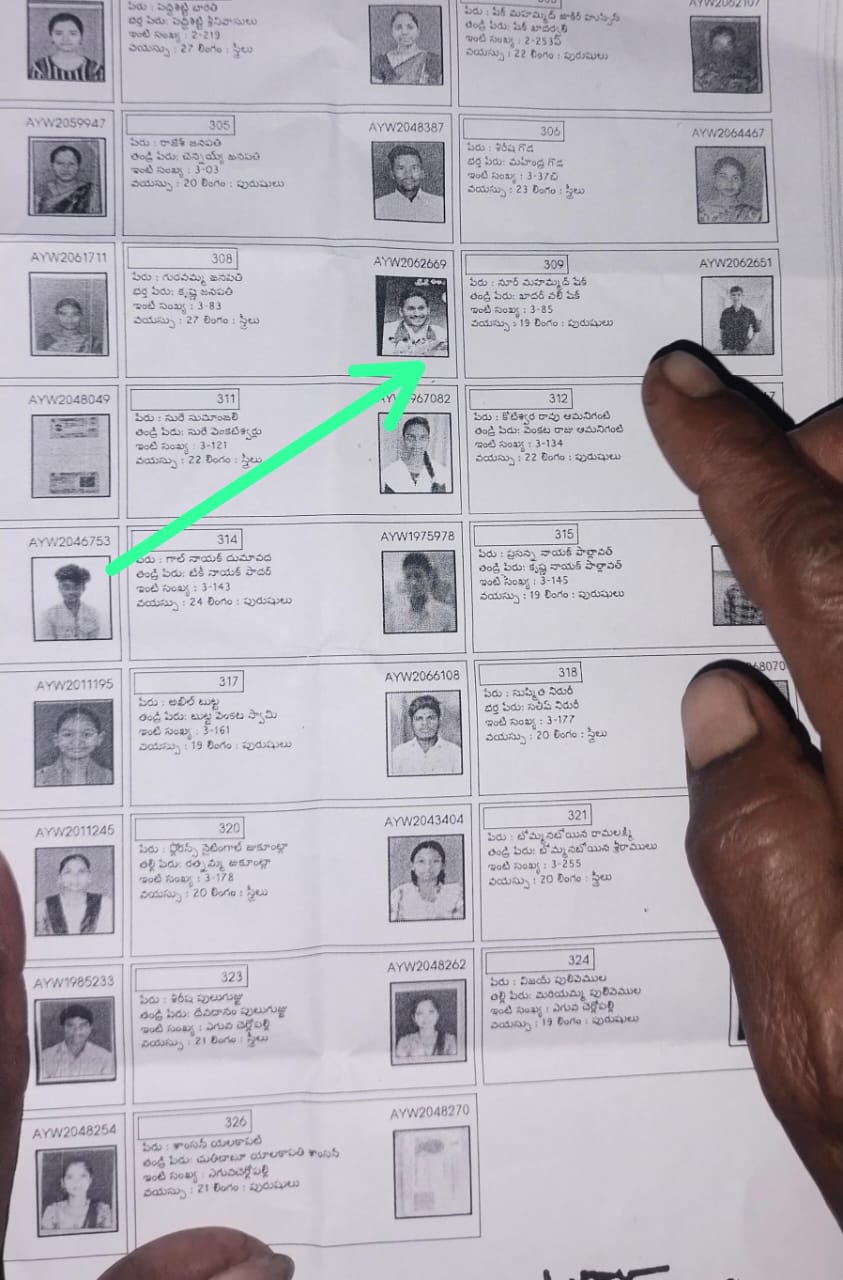 AYW2062107
పేరు : పెద్దిశెట్టి భారతి
భర్త పేరు: పెద్దిశెట్టి శ్రీనివాసులు
ఇంటి సంఖ్య : 2-219
వయస్సు : 27 లింగం : స్త్రీలు
పేరు : షేక్ మహమ్మద్ జాకీర్ హుస్సేన్
తండ్రి పేరు: షేక్ ఖాదర్వలి
ఇంటి సంఖ్య : 2-253ఏ
వయస్సు : 22 లింగం : పురుషులు
AYW2059947
305
పేరు : రాజేశ్ జనపతి
తండ్రి పేరు: చెన్నయ్య జనపతి
ఇంటి సంఖ్య : 3-03
వయస్సు : 20 లింగం : పురుషులు
AYW2048387
306
పేరు : శిరీష గొడ
భర్త పేరు: మహేంద్ర గొడ
ఇంటి సంఖ్య : 3-37బి
వయస్సు : 23 లింగం : స్త్రీలు
AYW2064467
AYW2061711
308
పేరు : గురవమ్మ జనపతి
భర్త పేరు: కృష్ణ జనపతి
ఇంటి సంఖ్య : 3-83
వయస్సు : 27 లింగం : స్త్రీలు
AYW2062669
309
పేరు : నూర్ మహమ్మద్ షేక్
తండ్రి పేరు: ఖాదర్ వలీ షేక్
ఇంటి సంఖ్య : 3-85
వయస్సు : 19 లింగం : పురుషులు
AYW2062651
AYW2048049
311
పేరు : సురే సుమాంజలి
తండ్రి పేరు: సురే వెంకటేశ్వర్లు
ఇంటి సంఖ్య : 3-121
వయస్సు : 22 లింగం : స్త్రీలు
967082
312
పేరు : కోటేశ్వర రావు ఆమనిగంటి
తండ్రి పేరు: వెంకట రాజు ఆమనిగంటి
ఇంటి సంఖ్య : 3-134
వయస్సు : 22 లింగం : పురుషులు
AYW2046753
314
పేరు : గాల్ నాయక్ దుమావద
తండ్రి పేరు: టికీ నాయక్ పాదర్
ఇంటి సంఖ్య : 3-143
వయస్సు : 24 లింగం : పురుషులు
AYW1975978
315
పేరు : ప్రసన్న నాయక్ పాత్లావత్
తండ్రి పేరు: కృష్ణ నాయక్ పాత్లావత్
ఇంటి సంఖ్య : 3-145
వయస్సు : 19 లింగం : పురుషులు
AYW2011195
317
పేరు : అఖిల్ బుట్ట
తండ్రి పేరు: బుట్ట వెంకట స్వామి
ఇంటి సంఖ్య : 3-161
వయస్సు : 19 లింగం : పురుషులు
AYW2066108
318
పేరు : సుష్మిత నిడురీ
భర్త పేరు: సతీష్ నిడురీ
ఇంటి సంఖ్య : 3-177
వయస్సు : 20 లింగం : స్త్రీలు
68070
AYW2011245
320
పేరు : ఫ్లోరెన్స్ నైటింగాల్ జుకూంట్లా
తల్లి పేరు: రత్నమ్మ జుకూంట్లా
ఇంటి సంఖ్య : 3-178
వయస్సు : 20 లింగం : స్త్రీలు
AYW2043404
321
పేరు : బొమ్మనబోయిన రామలక్ష్మి
తండ్రి పేరు: బొమ్మనబోయిన శ్రీరాములు
ఇంటి సంఖ్య : 3-255
వయస్సు : 20 లింగం : స్త్రీలు
AYW1985233
323
పేరు : శిరీష పులుగుజ్జు
తండ్రి పేరు: దేవదానం పులుగుజ్జు
ఇంటి సంఖ్య : ఎగువ చెర్లోపల్లి
వయస్సు : 21 లింగం : స్త్రీలు
AYW2048262
324
పేరు : విజయ్ పులివెముల
తల్లి పేరు: మరియమ్మ పులివెముల
ఇంటి సంఖ్య : ఎగువ చెర్లోపల్లి
వయస్సు : 19 లింగం : పురుషులు
AYW2048254
326
పేరు : శాంసన్ యాలకాపటి
తండ్రి పేరు: చుతిబాబూ యాలకాపతి శాంసన్
ఇంటి సంఖ్య : ఎగువచెర్లోపల్లి
వయస్సు : 21 లింగం : పురుషులు
AYW2048270